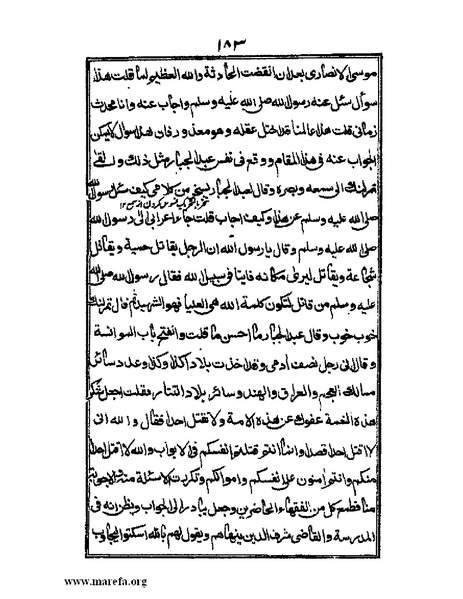 ١٨٣
موسى الانصارى بعد ان انقضت الحادثة والله العظيم لما قلت هذا
سؤال سئل عنه رسول الله صلى الله عليه وسلم واجاب عنه وانا محدث
زمانى قلت هذا عالمنا قد اختل عقله وهو معذور فان هذا سؤال لا يمكن
الجواب عنه فى هذا المقام ووقع فى نفس عبد الجبار مثل ذلك والقى
تمرلنك الى سمعه وبصره وقال لعبد الجبار يسخر من كلامى كيف سئل رسول الله
صلى الله عليه وسلم عن هذا وكيف اجاب قلت جاء اعرابى الى رسول الله
صلى الله عليه وسلم وقال يا رسول الله ان الرجل يقاتل حمية ويقاتل
شجاعة ويقاتل ليرى مكانه فاينا فى سبيل الله فقال رسول الله صلى الله
عليه وسلم من قاتل لتكون كلمة الله هى العليا فهو الشهيد فقال تمرلنك
خوب خوب وقال عبد الجبار ما احسن ما قلت وانفتح باب الموانسة
وقال انى رجل نصف ادمى وقد اخذت بلاد كذا وكذا وعدد سائر
ممالك العجم والعراق والهند وسائر بلاد التتار فقلت اجعل شكر
هذه النعمة عفوك عن هذه الامة ولا تقتل احدا فقال والله انى
لا اقتل احدا قصدا وانما انتم قتلتم انفسكم فى الابواب والله لا اقتل احدا
منكم وانتم امنون على انفسكم واموالكم وتكررت الاسئلة منه والاجوبة
منا فطمع كل من الفقهاء الحاضرين وجعل يبادر الى الجواب ويظن انه فى
المدرسة والقاضى شرف الدين ينهاهم ويقول لهم بالله اسكتوا ليجاوب
www.marefa.org